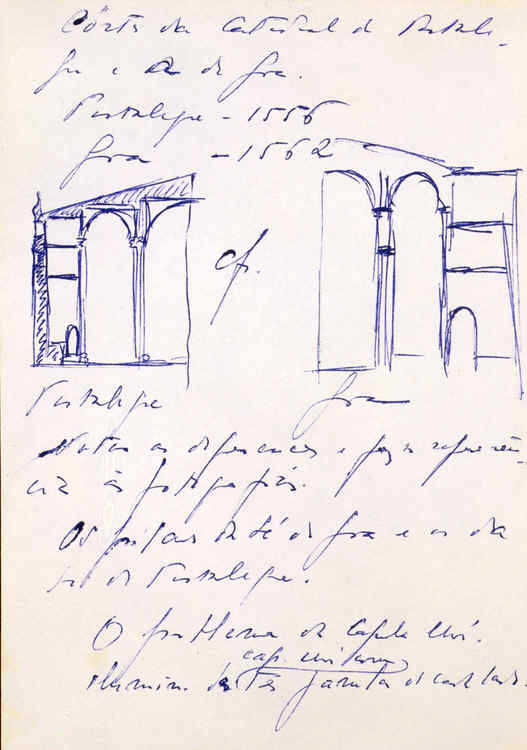 Côrte da Catedral de Portale-
gre e de Goa.
Portalegre - 1556
Goa - 1562
cfr.
Portalegre
Goa
Notar as diferenças e fazer referên-
cia às fotografias.
Os pilares da Sé de Goa e os da
Sé de Portalegre.
O problema da Capela Mór.
cap. mór
ilumin.